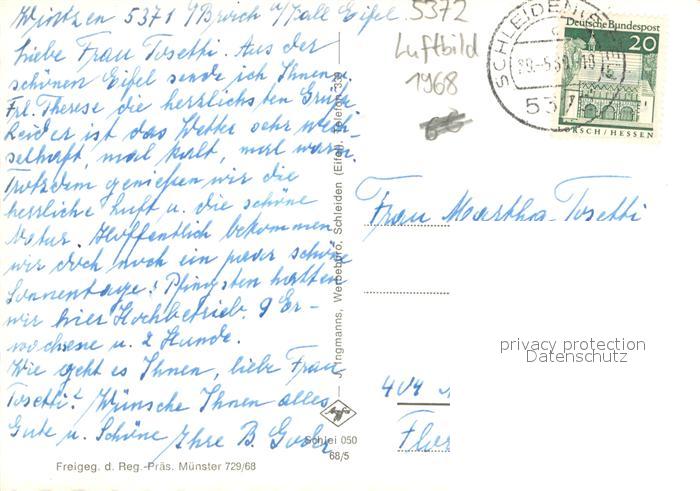 5371
Eifel.
5372
Liebe Frau Tosetti. Aus der
Luftbild
schönen Eifel sende ich Ihnen u.
1968
Frl. Therese die herrlichsten Grüße
Leider ist das Wetter sehr wech-
selhaft, mal kalt, mal warm.
Trotzdem genießen wir die
herrliche Luft u. die schöne
Natur. Hoffentlich bekommen
wir doch noch ein paar schöne
Sonnentage! Pfingsten hatten
wir hier Hochbetrieb. 9 Er-
wachsene u. 2 Hunde.
Wie geht es Ihnen, liebe Frau
Tosetti? Wünsche Ihnen alles
Gute u. Schöne Ihre B.
Freigeg. d. Reg.-Präs. Münster 729/68
Werbebüro, Schleiden (Eifel), Telefon
Schlei 050
68/5
Deutsche Bundespost
20
LORSCH / HESSEN
SCHLEIDEN
Frau Martha Tosetti
404
privacy protection
Datenschutz